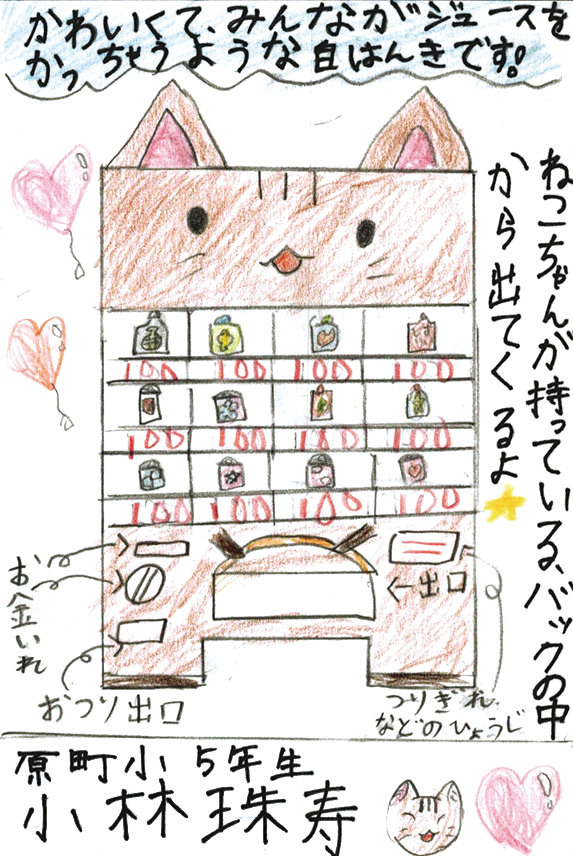 かわいくて、みんながジュースを
かっちゃうような自はんきです。
ねこちゃんが持っている、バックの中
から出てくるよ
100 100 100 100
100 100 100 100
100 100 100 100
お金いれ
←出口
おつり出口
つりぎれ
などのひょうじ
原町小5年生
小林珠寿